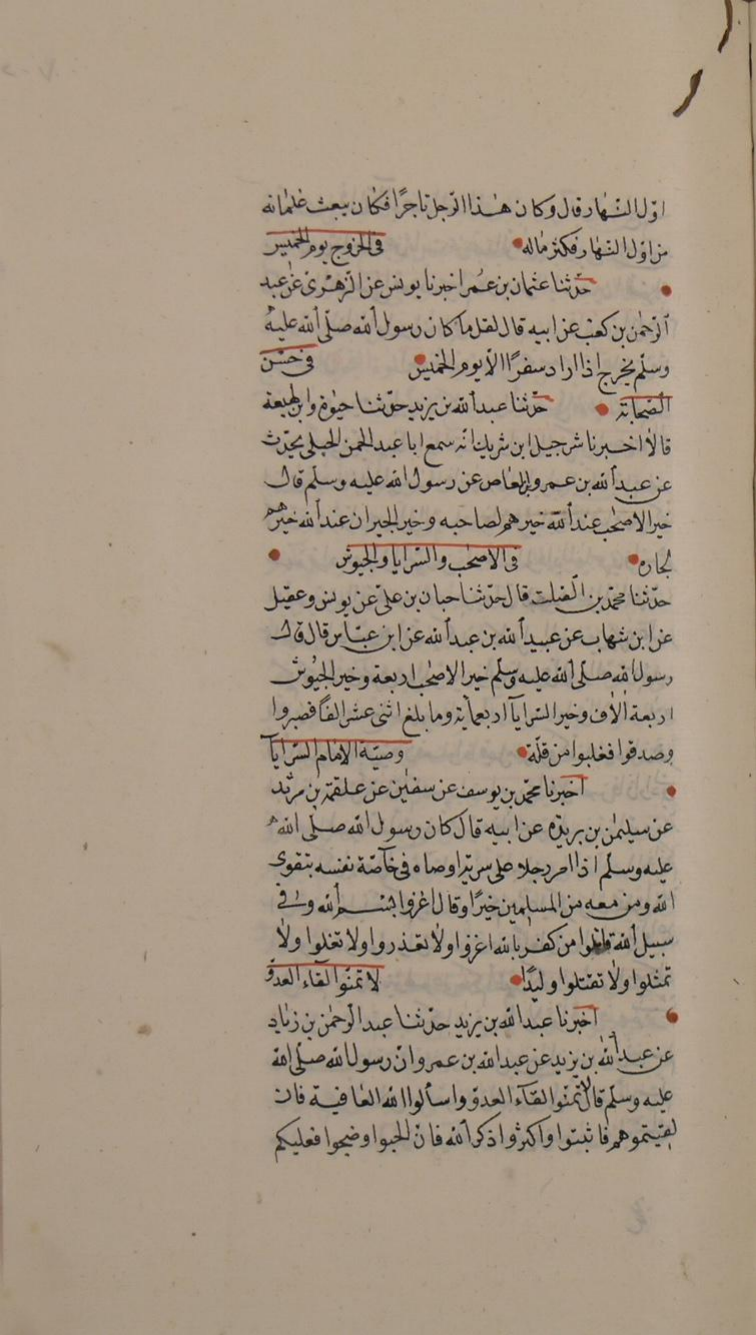 اوّل النّهار قال وكان هذا الرّجل تاجرًا فكان يبعث غلمانه
من اوّل النهار فكثر ماله في الخروج يوم الخميس
حدّثنا عثمان بن عمر اخبرنا يونس عن الزهري عن عبد
الرّحمن بن كعب عن ابيه قال لقل ما كان رسول الله صلّى الله عليه
وسلّم يخرج اذا اراد سفرًا الا يوم الخميس في حسن
الصّحابة حدّثنا عبد الله بن يزيد حدّثنا حيوة وابن لهيعة
قالا اخبرنا شرحبيل ابن شريك انّه سمع ابا عبد الرحمن الحبلي يحدّث
عن عبد الله بن عمرو بن العاص عن رسول الله عليه وسلّم قال
خير الاصحب عند الله خيرهم لصاحبه وخير الجيران عند الله خيرهم
لجاره في الاصحب والسّرايا والجيوش
حدّثنا محمّد بن الصّلت قال حدّثنا حبان بن عليّ عن يونس وعقيل
عن ابن شهاب عن عبيد الله بن عبد الله عن ابن عبّاس قال قال
رسول الله صلى الله عليه وسلّم خير الاصحب اربعة وخير الجيوش
اربعة الاف وخير السّرايا اربعماية وما بلغ اثنى عشر الفًا فصبروا
وصدقوا فغلبوا من قلّة وصيّة الامام السّرايا
اخبرنا محمّد بن يوسف عن سفين عن علقمة بن مرثد
عن سليمن بن بريدة عن ابيه قال كان رسول الله صلّى الله
عليه وسلّم اذا امر رجلا على سرية اوصاه في خاصّة نفسه بتقوى
الله ومن معه من المسلمين خيرًا وقال اغزوا بسم الله وفي
سبيل الله قاتلوا من كفر بالله اغزوا ولا تغدروا ولا تغلوا ولا
تمثلوا ولا تقتلوا وليدًا لا تمنّوا لقاء العدوّ
اخبرنا عبد الله بن يزيد حدّثنا عبد الرّحمن بن زياد
عن عبد الله بن يزيد عن عبد الله بن عمرو انّ رسول الله صلّى الله
عليه وسلّم قال لا تمنّوا لقآء العدوّ واسألوا الله العافية فان
لقيتموهم فاثبتوا واكثروا ذكر الله فان اجلبوا وضيحوا فعليكم